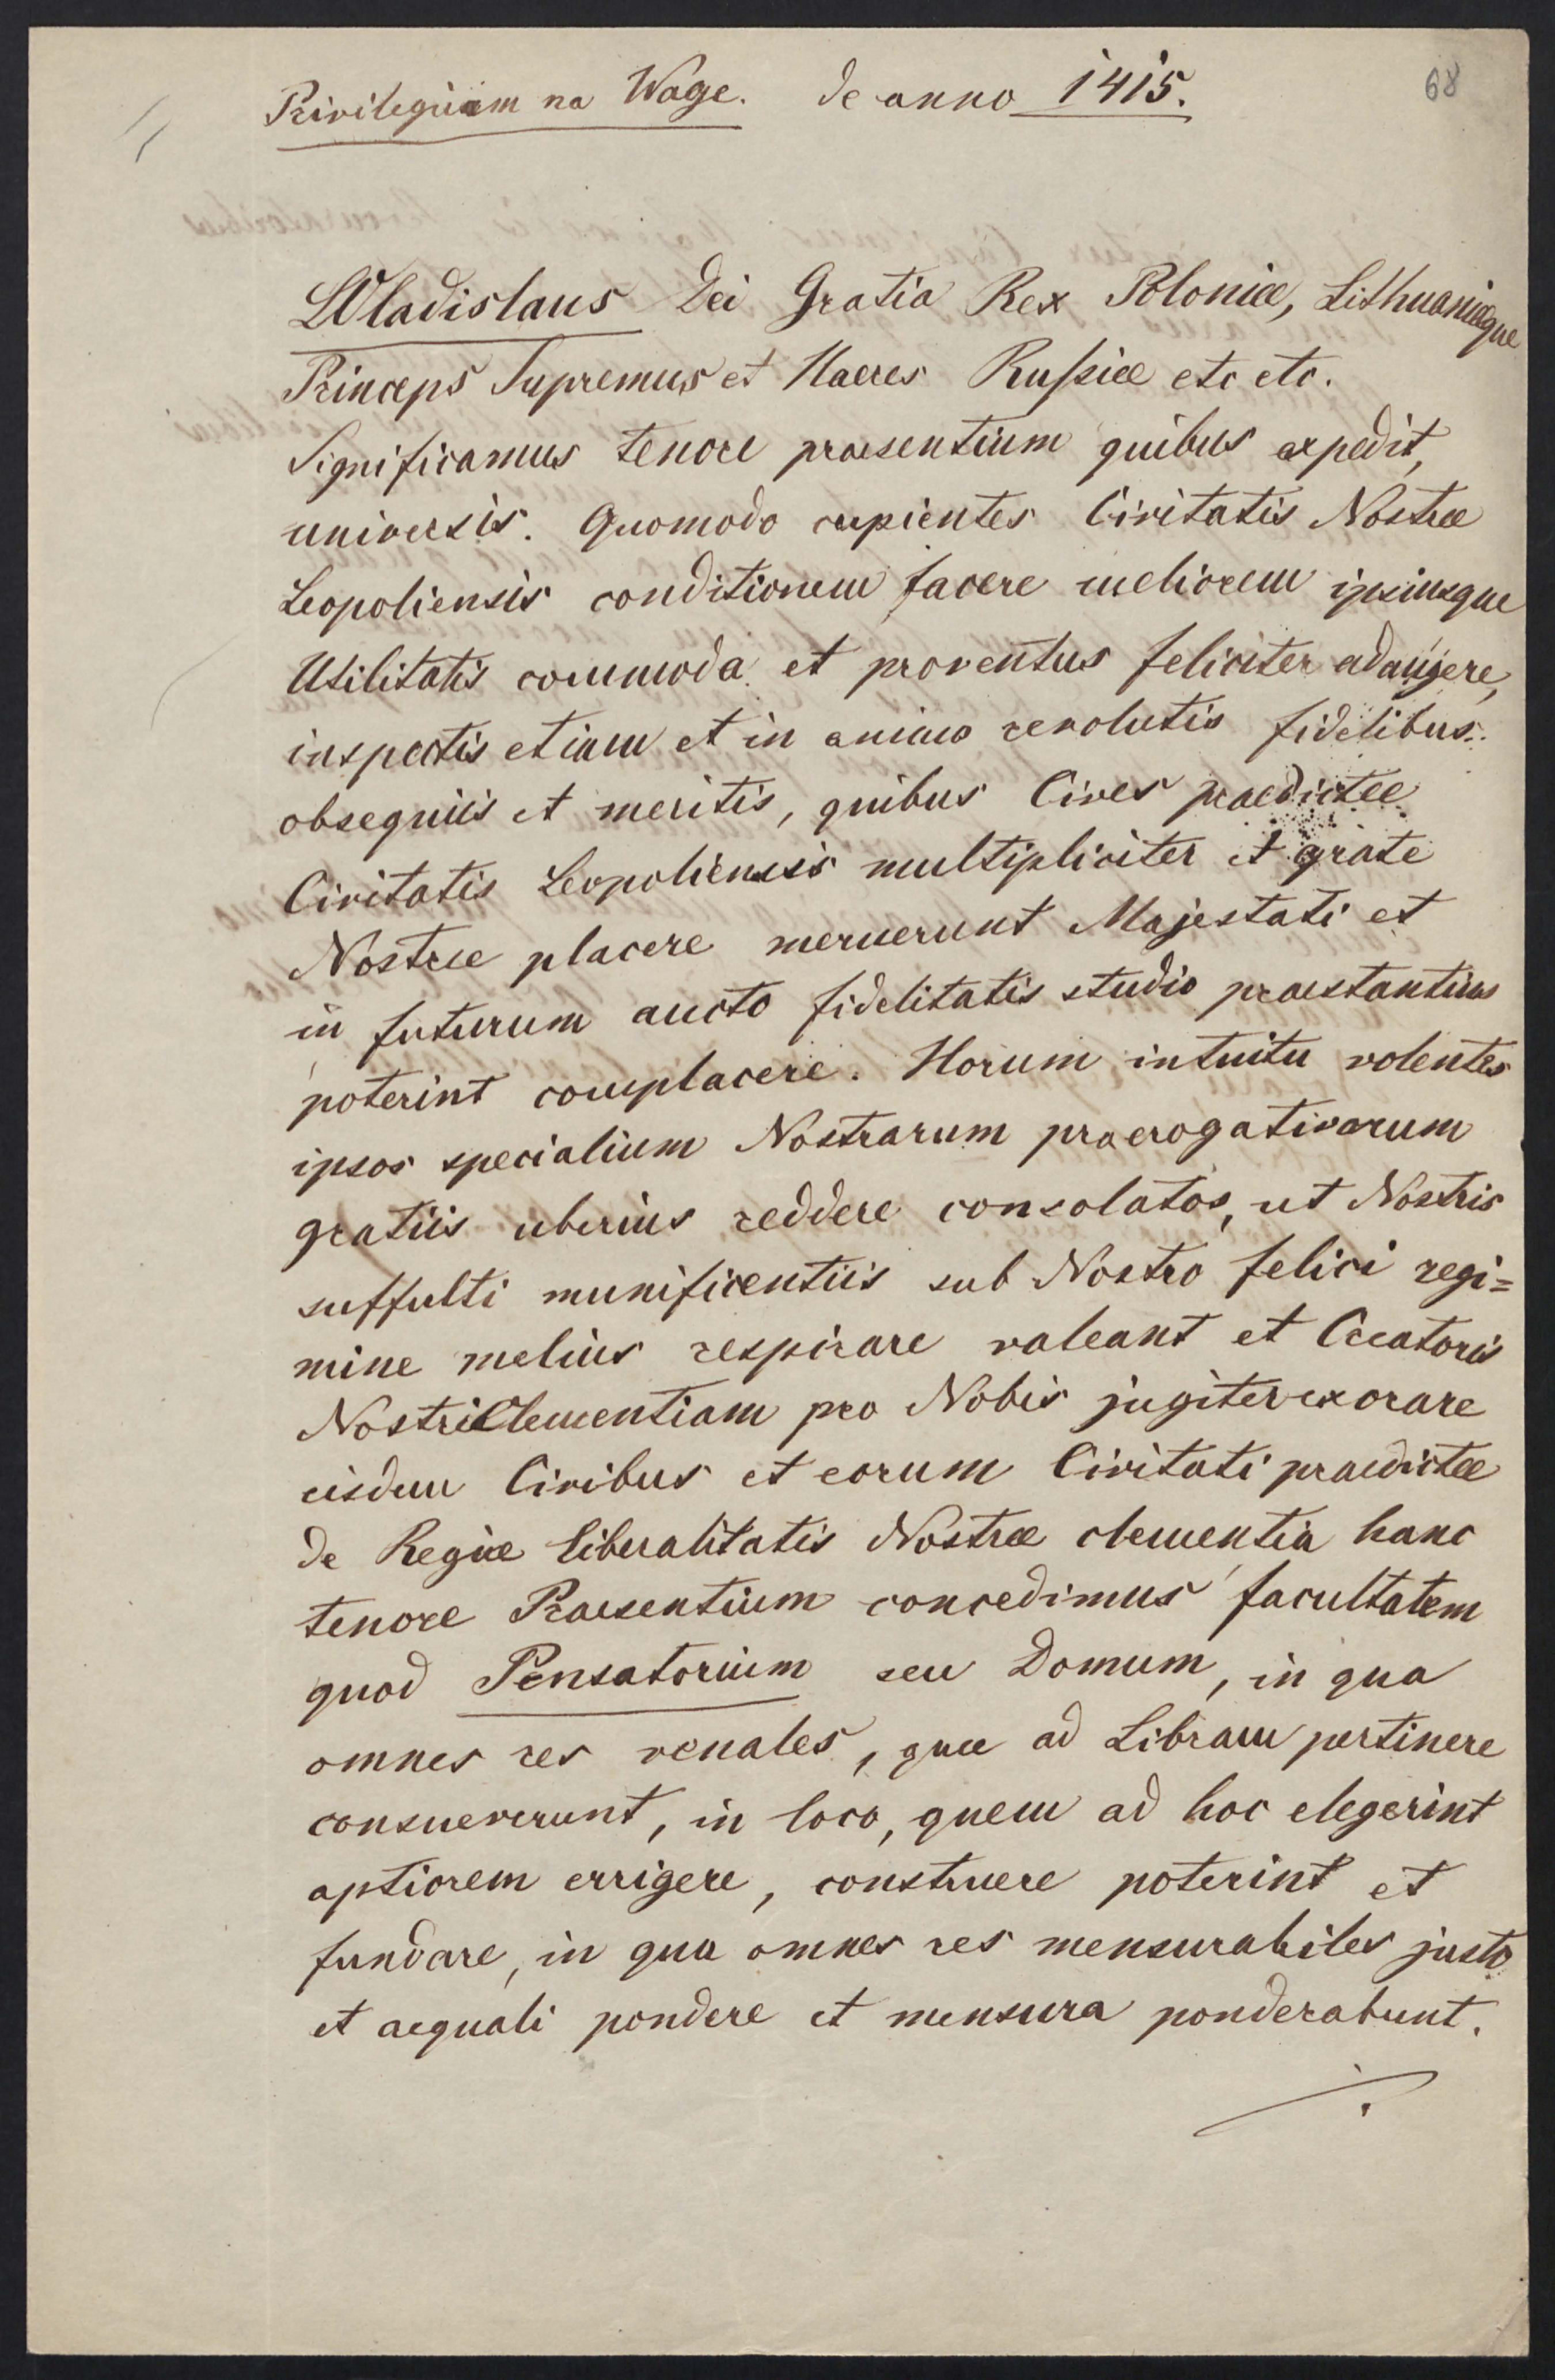 Privilegium na Wagę. de anno 1415.
68
Wladislaus Dei Gratia Rex Poloniæ, Lithuaniæque
Princeps Supremus et Haeres Russiæ etc etc.
Significamus tenore praesentium quibus expedit,
universis. Quomodo cupientes Civitatis Nostræ
Leopoliensis conditionem facere meliorem ipsiusque
Utilitatis commoda et proventus feliciter adaugere,
inspectis etiam et in animo revolutis fidelibus
obsequiis et meritis, quibus Cives praedictæ
Civitatis Leopoliensis multipliciter et grate
Nostræ placere meruerunt Majestati et
in futurum aucto fidelitatis studio praestantius
poterint complacere. Horum intuitu volentes
ipsos specialium Nostrarum praerogativarum
gratiis uberius reddere consolatos, ut Nostris
suffulti munificentiis sub Nostro felici regi=
mine melius respirare valeant et Creatoris
Nostri Clementiam pro Nobis jugiter exorare
eisdem Civibus et eorum Civitati praedictæ
de Regiæ liberalitatis Nostræ clementia hanc
tenore Praesentium concedimus facultatem
quod Pensatorium seu Domum, in qua
omnes res venales, quæ ad Libram pertinere
consueverunt, in loco, quem ad hoc elegerint
aptiorem errigere, construere poterint et
fundare, in qua omnes res mensurabiles justo
et aequali pondere et mensura ponderabunt.
./.